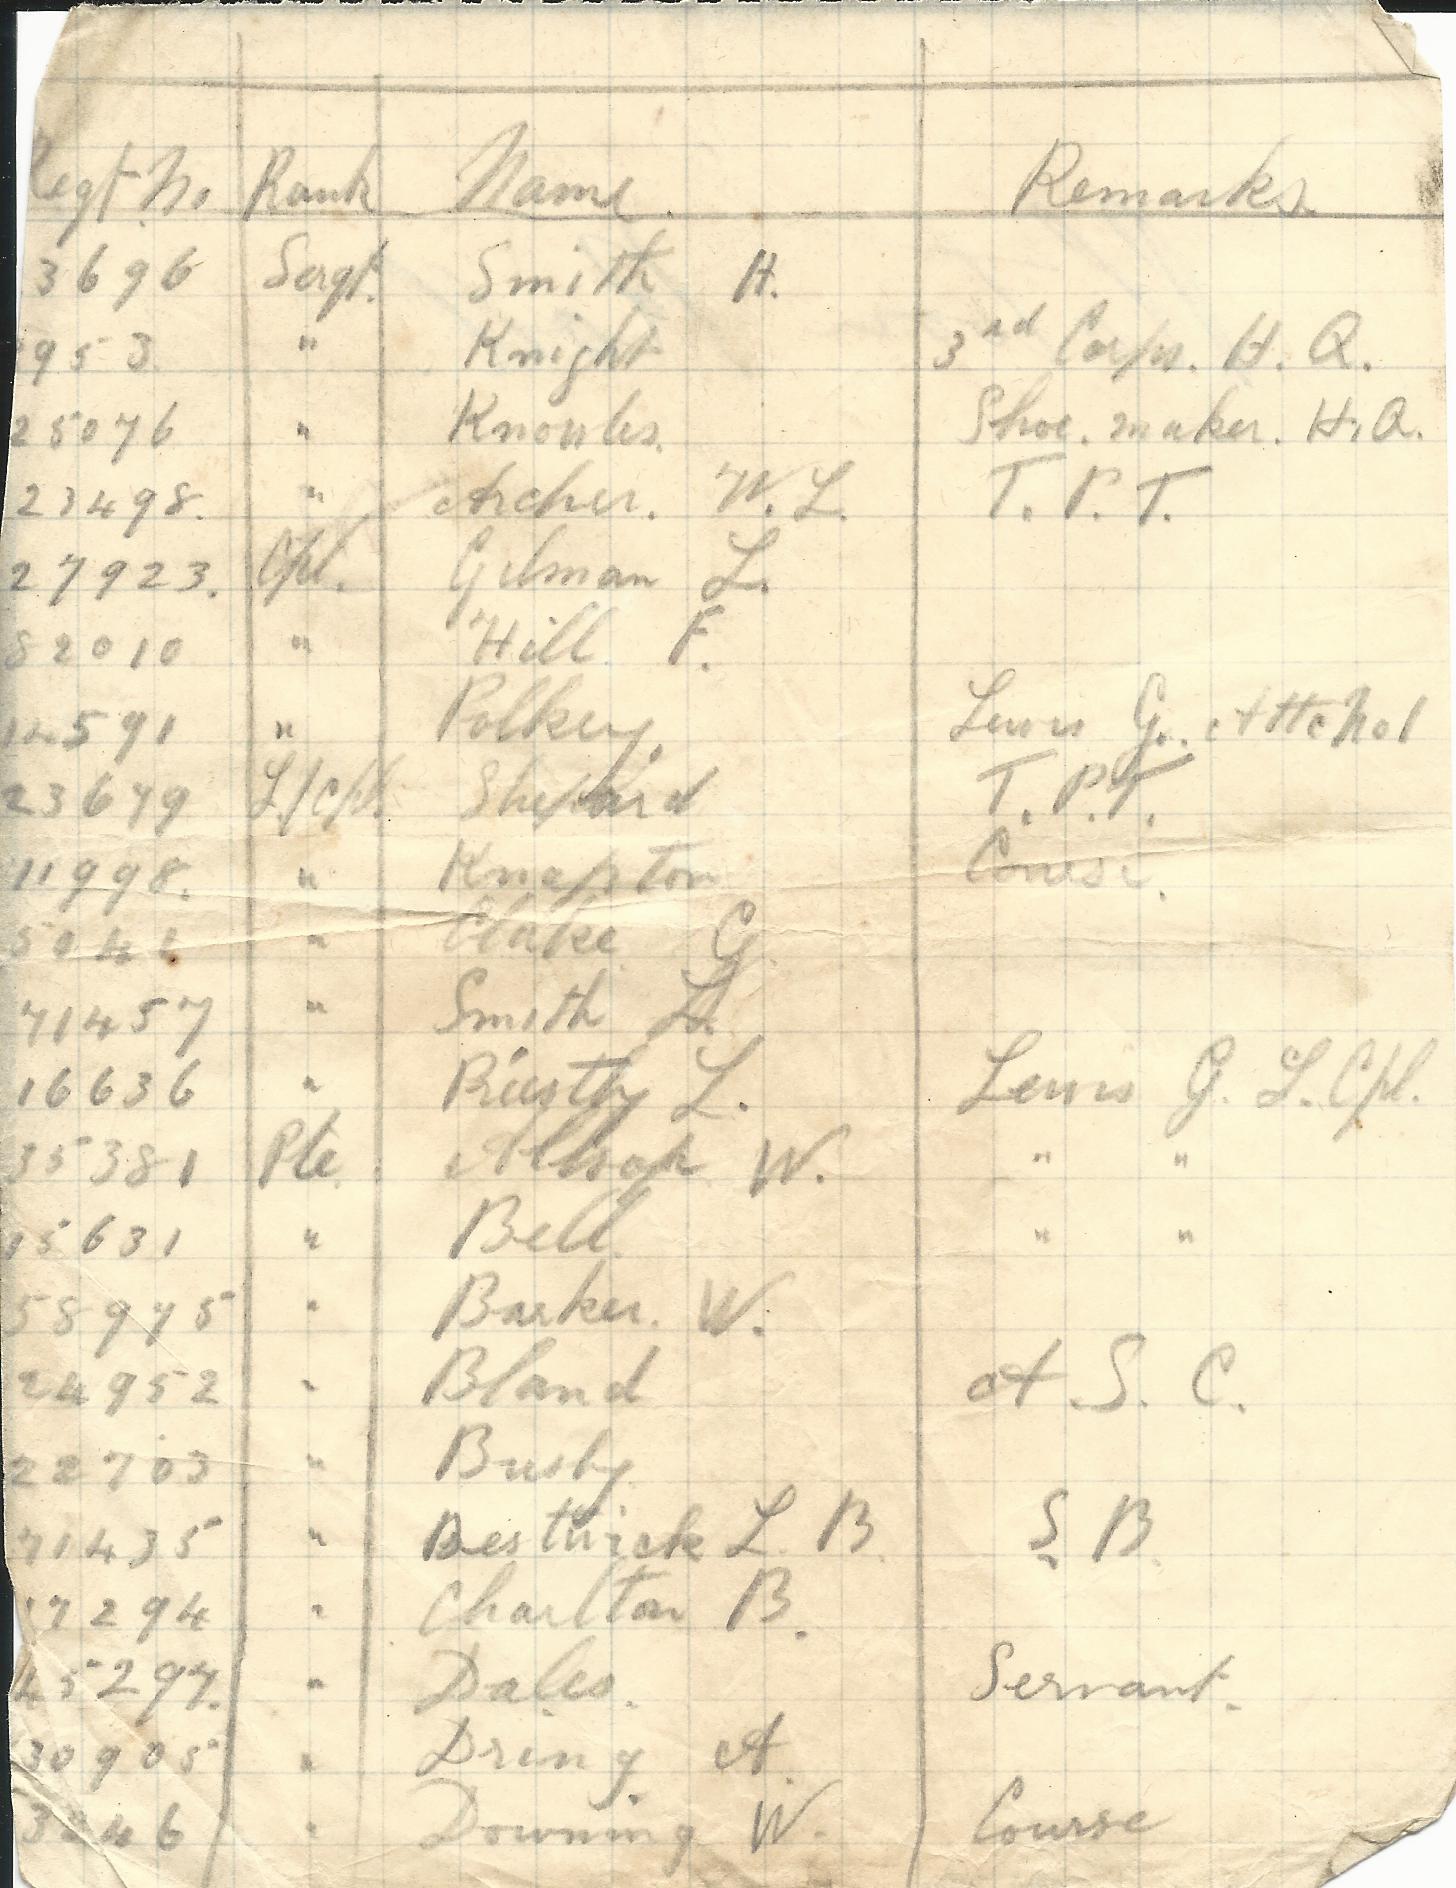 Regt No Rank Name Remarks
3696 Sergt. Smith H.
953 " Knight 3rd Corps. H. Q.
25076 " Knowles. Shoe. maker. H. Q.
23498. " Archer. W. L. T. P. T.
27923. Cpl. Gilman L.
82010 " Hill F.
14591 " Polkey. Lewis G.
23679 L/cpl. Shepard T. P. T.
11998. " Knapton Course.
" Clarke G.
71457 " Smith H.
16636 " Priestly L. Lewis G. L. Cpl.
35381 Pte. Allsop W. " "
15631 " Bell. " "
58975 " Barker. W.
24952 " Bland A. S. C.
22703 " Busby
71435 " Bestwick L. B S. B.
17294 " Charlton B.
45297. " Dales. Servant.
30905 " Dring A.
" Downing W. Course